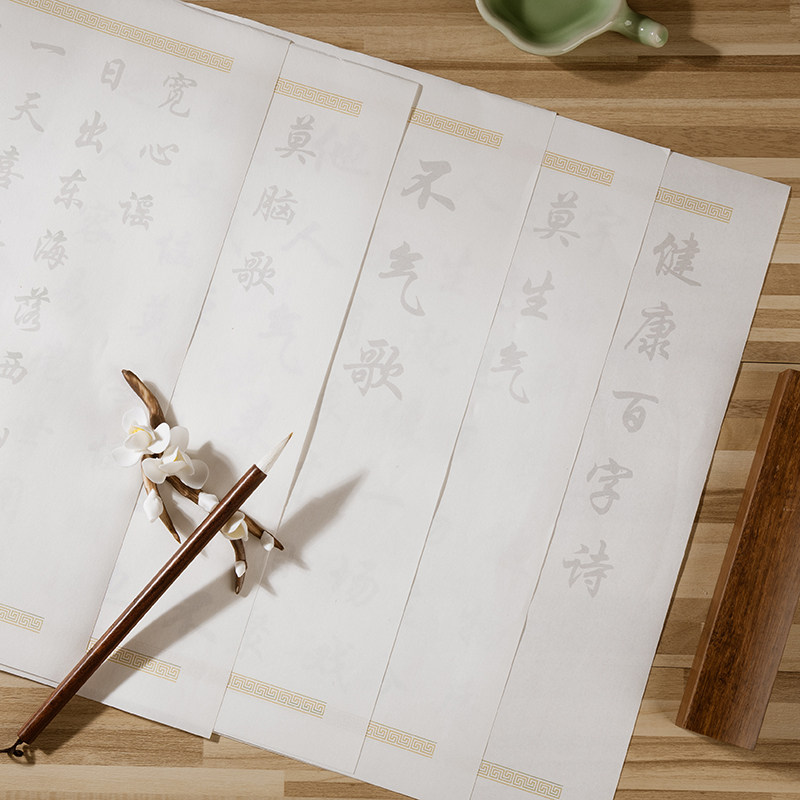 健康百字诗
莫生气
不气歌
莫脑歌
宽心谣
日出东海落西
一天喜